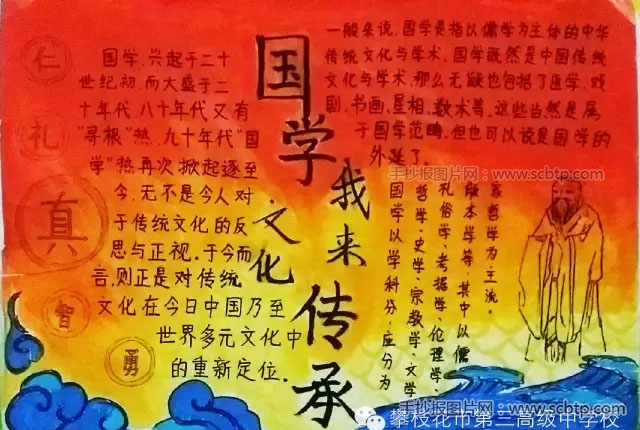 国学文化
我来传承
仁
礼
真
智
勇
国学,兴起于二十
世纪初,而大盛于二
十年代,八十年代又有
"寻根"热,九十年代"国
学"热再次掀起逐至
今,无不是今人对
于传统文化的反
思与正视。于今而
言,则正是对传统
文化在今日中国乃至
世界多元文化中
的重新定位。
一般来说,国学是指以儒学为主体的中华
传统文化与学术。国学既然是中国传统
文化与学术,那么无疑也包括了医学、戏
剧、书画、星相、数术等,这些当然是属
于国学范畴,但也可以说是国学的
外延了。
国学以学科分,应分为
哲学、史学、宗教学、文学、
礼俗学、考据学、伦理学、
版本学等,其中以儒
家哲学为主流。
手抄报图片网
www.scbtp.com
手抄报图片网
www.scbtp.com
手抄报图片网
www.scbtp.com
攀枝花市第三高级中学校